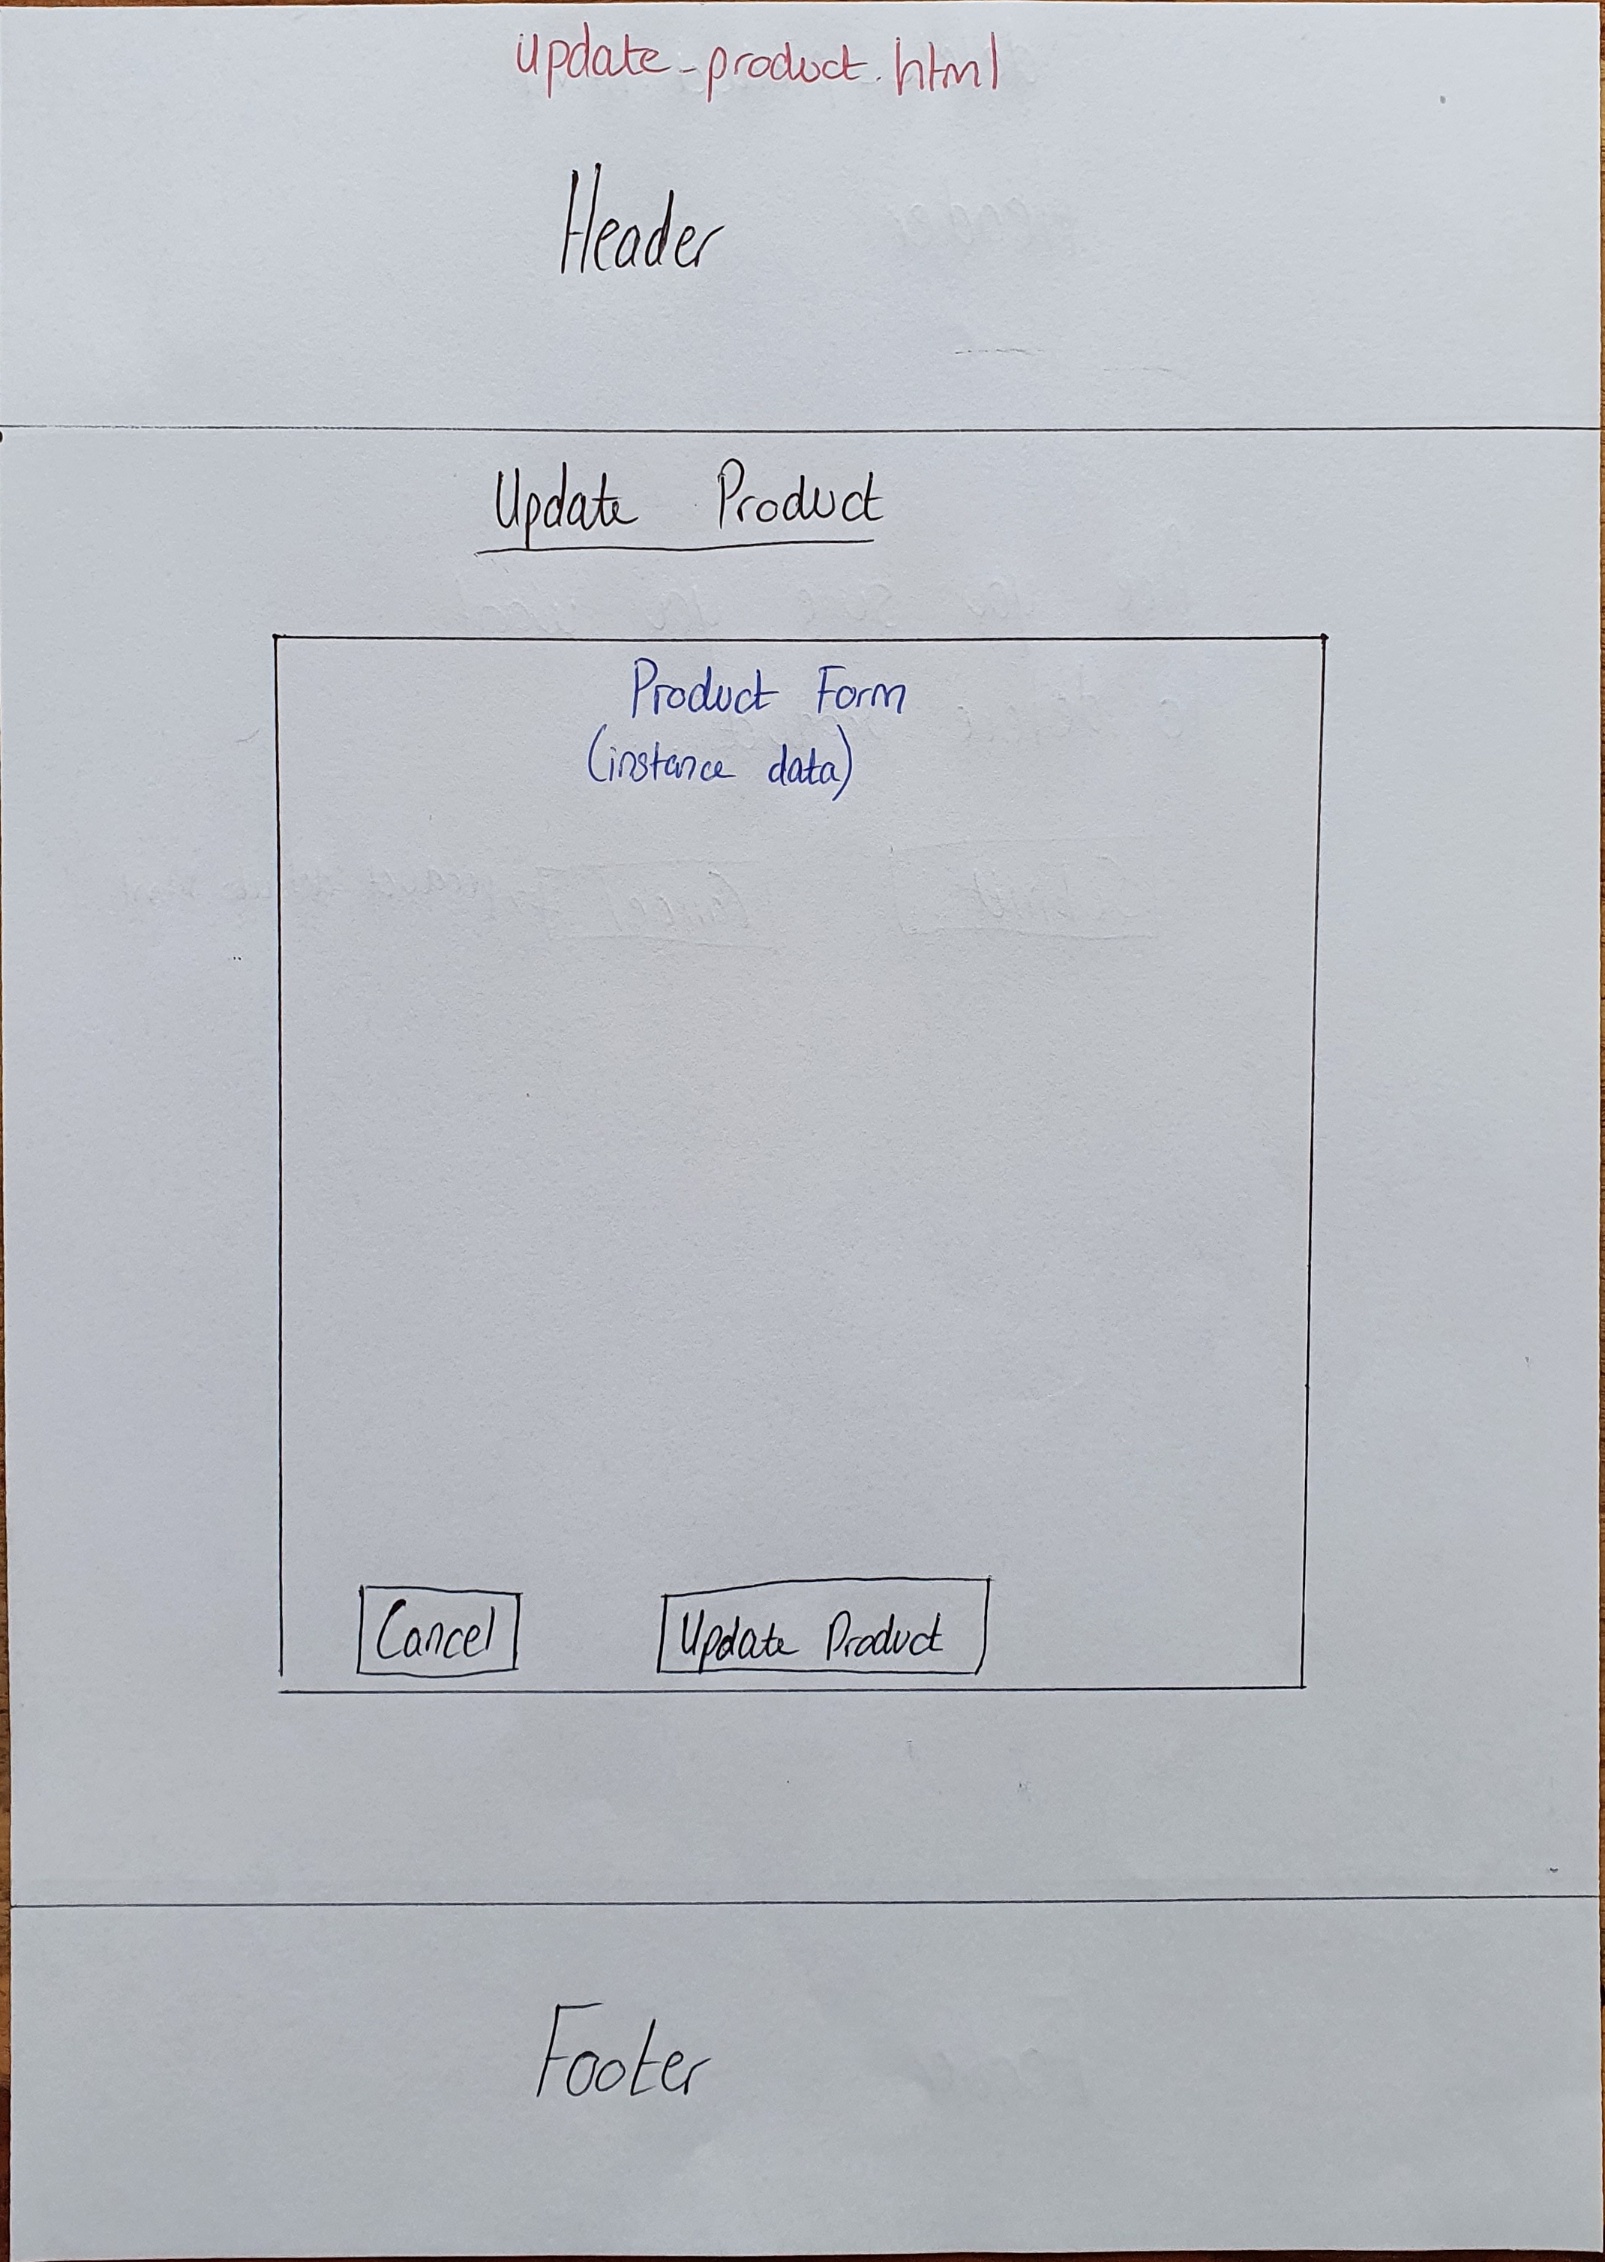 update_product.html
Header
Update Product
Product Form
(instance data)
Cancel
Update Product
Footer